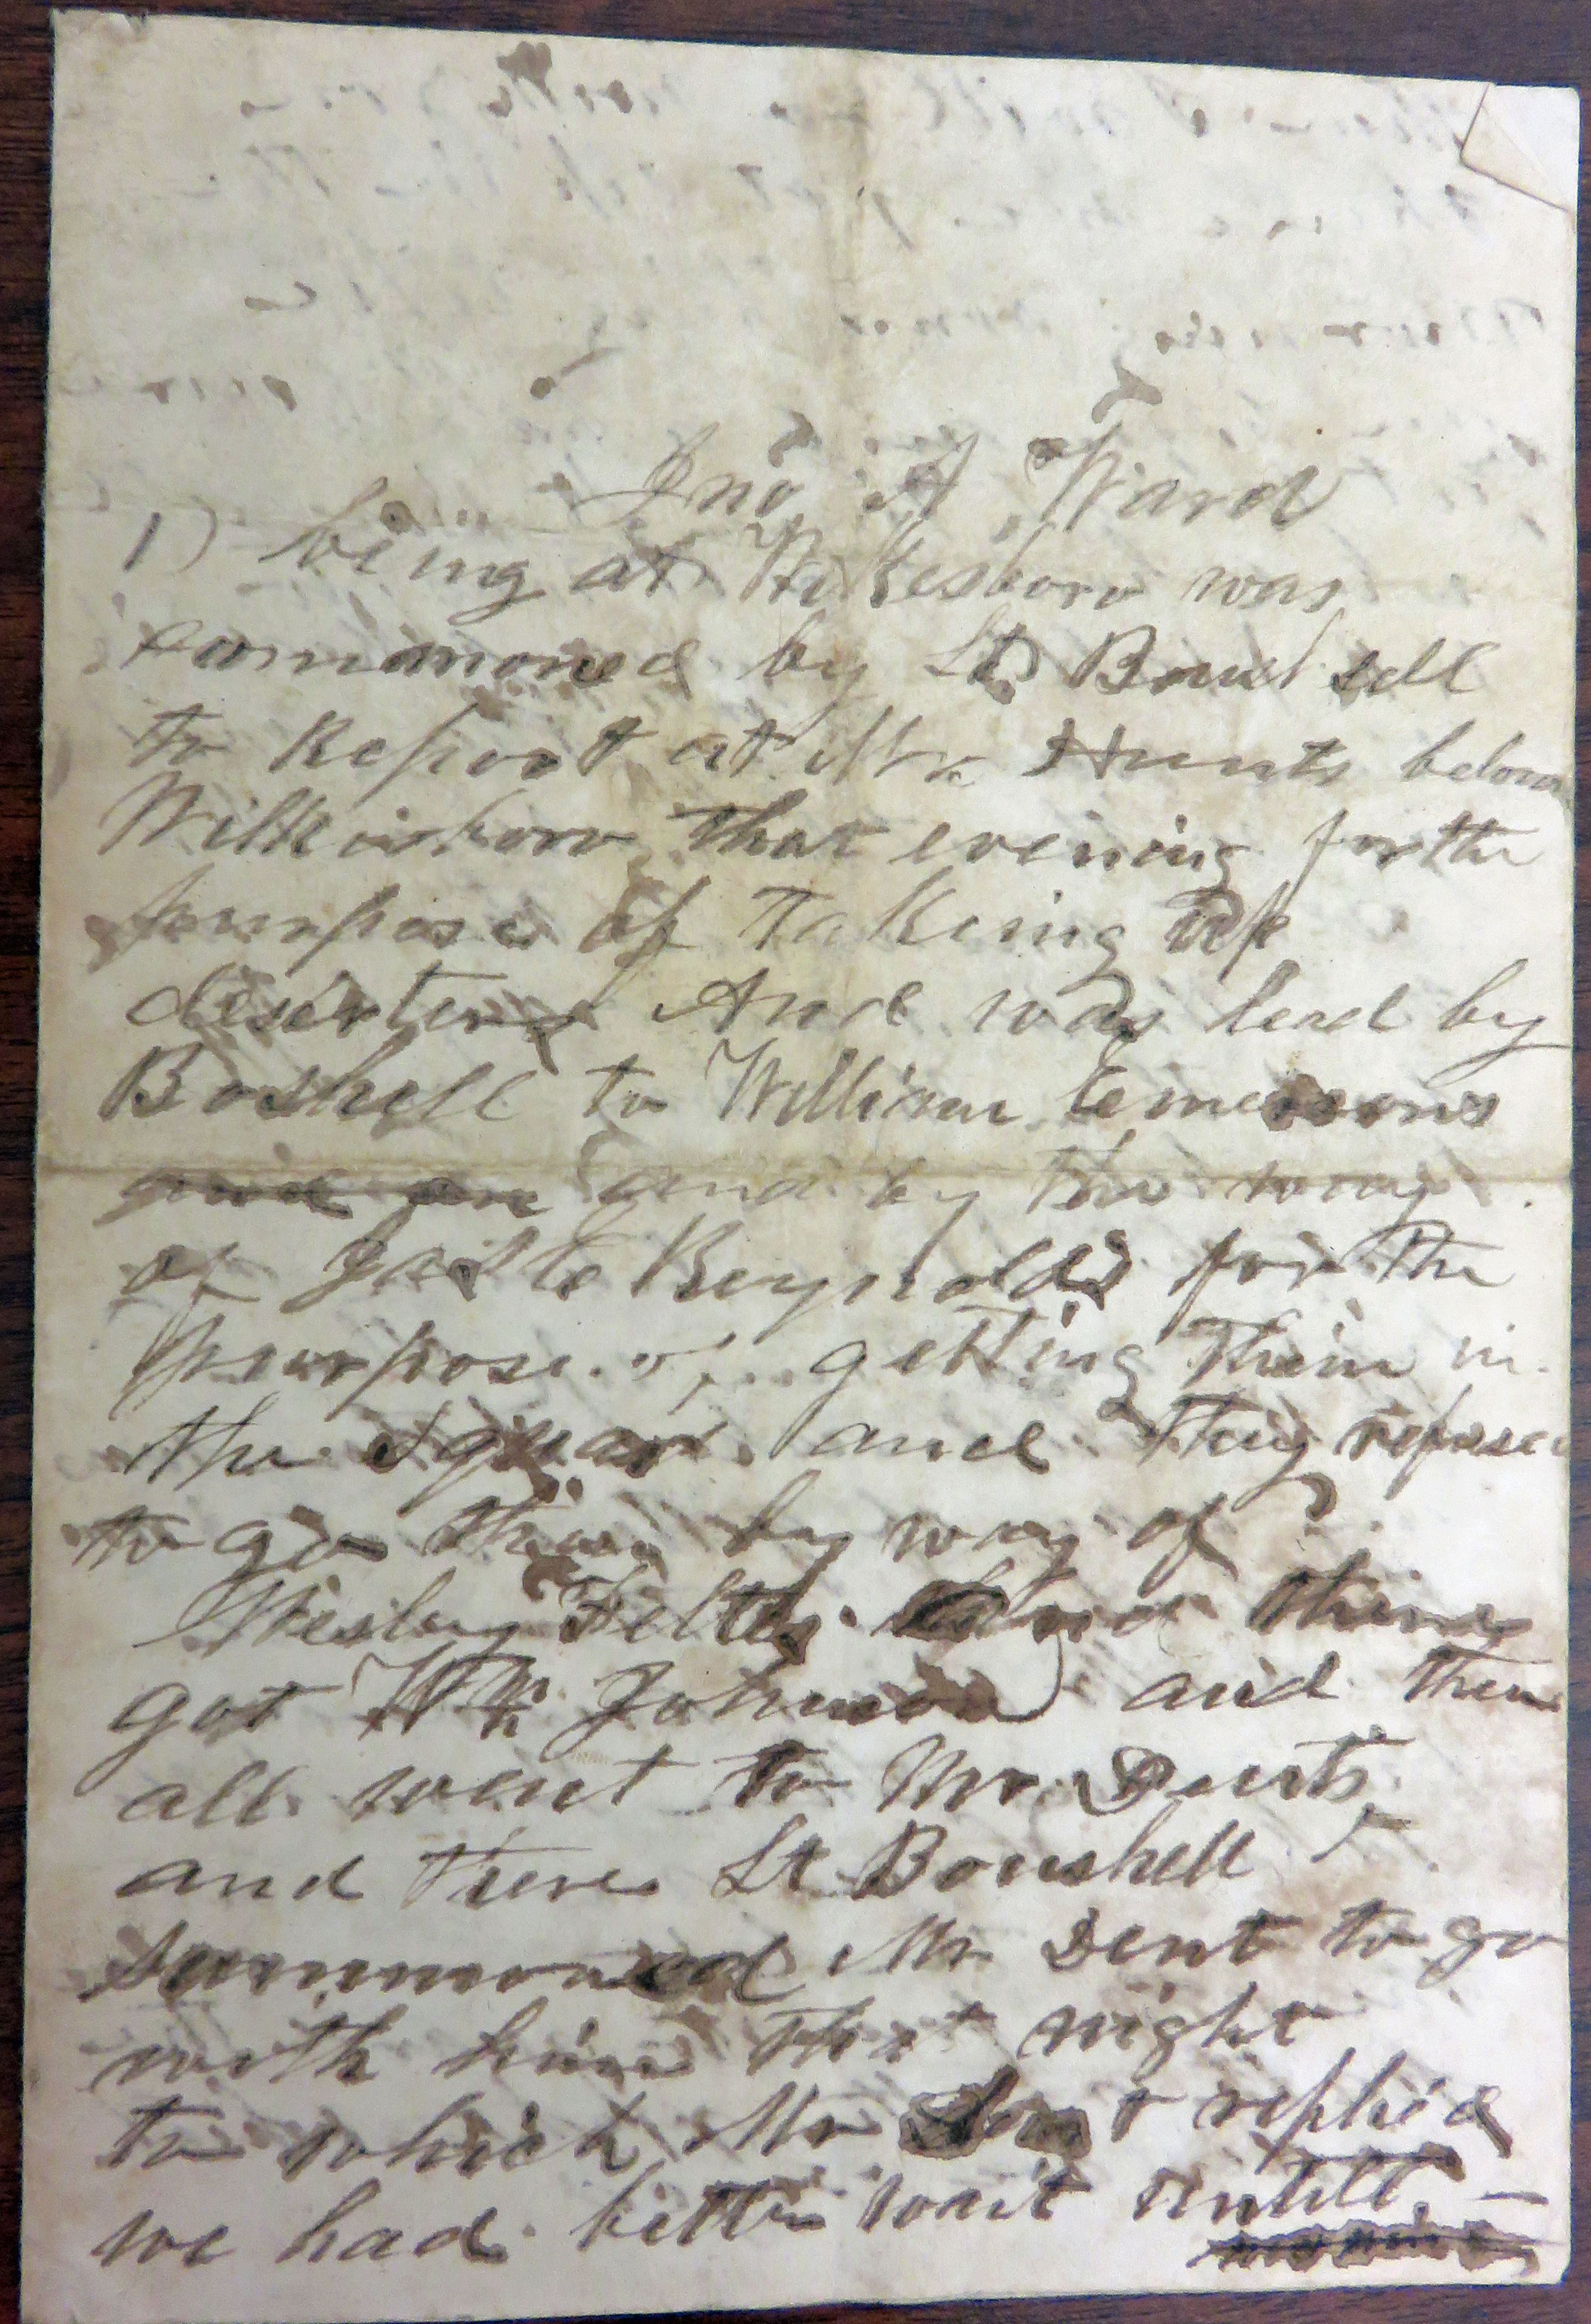 Jno A Ward
1) being at Wilkesboro was
summoned by Lt Boushell
to Report at Mr Hunts below
Wilkesboro that evening for the
purpose of taking up
deserters And was lead by
Boshell to William Emersons
and by the way
of Reynolds for the
purpose of getting them in
the squad and they refused
to go then by way of
Wesley Felts And then
got Wm Johnson and then
all went to Mr Dents
and there Lt Boushell
summoned Mr Dent to go
with him that night
to which Mr Dent replied
we had better wait untill